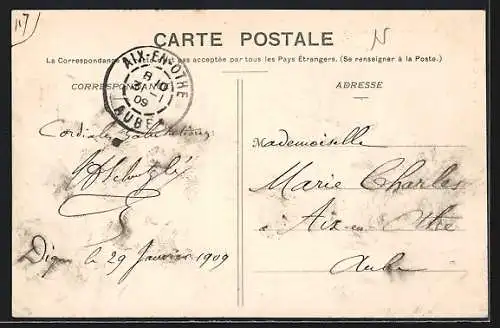 CARTE POSTALE
La Correspondance au recto n'est pas acceptée par tous les Pays Étrangers. (Se renseigner à la Poste.)
CORRESPONDANCE
ADRESSE
AIX-EN-OTHE
8
31-1
09
AUBE
Cordiales Salutations
Digne le 29 Janvier 1909
Mademoiselle
Marie Charles
à Aix-en-Othe
Aube
N